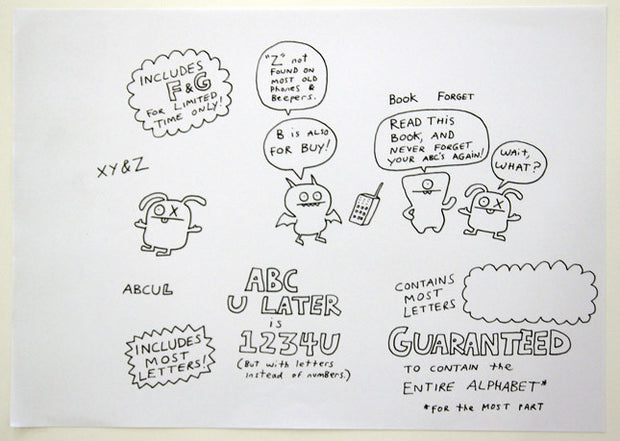 INCLUDES
F & G
FOR LIMITED
TIME ONLY!
"Z" not
FOUND ON
MOST OLD
PHONES &
BEEPERS.
B IS ALSO
FOR BUY!
BOOK FORGET
READ THIS
BOOK, AND
NEVER FORGET
YOUR ABC'S AGAIN!
WAIT,
WHAT?
XY&Z
ABCUL
INCLUDES
MOST
LETTERS!
ABC
U LATER
is
1234U
(But with letters
instead of numbers.)
CONTAINS
MOST
LETTERS
GUARANTEED
TO CONTAIN the
ENTIRE ALPHABET*
*FOR the MOST PART